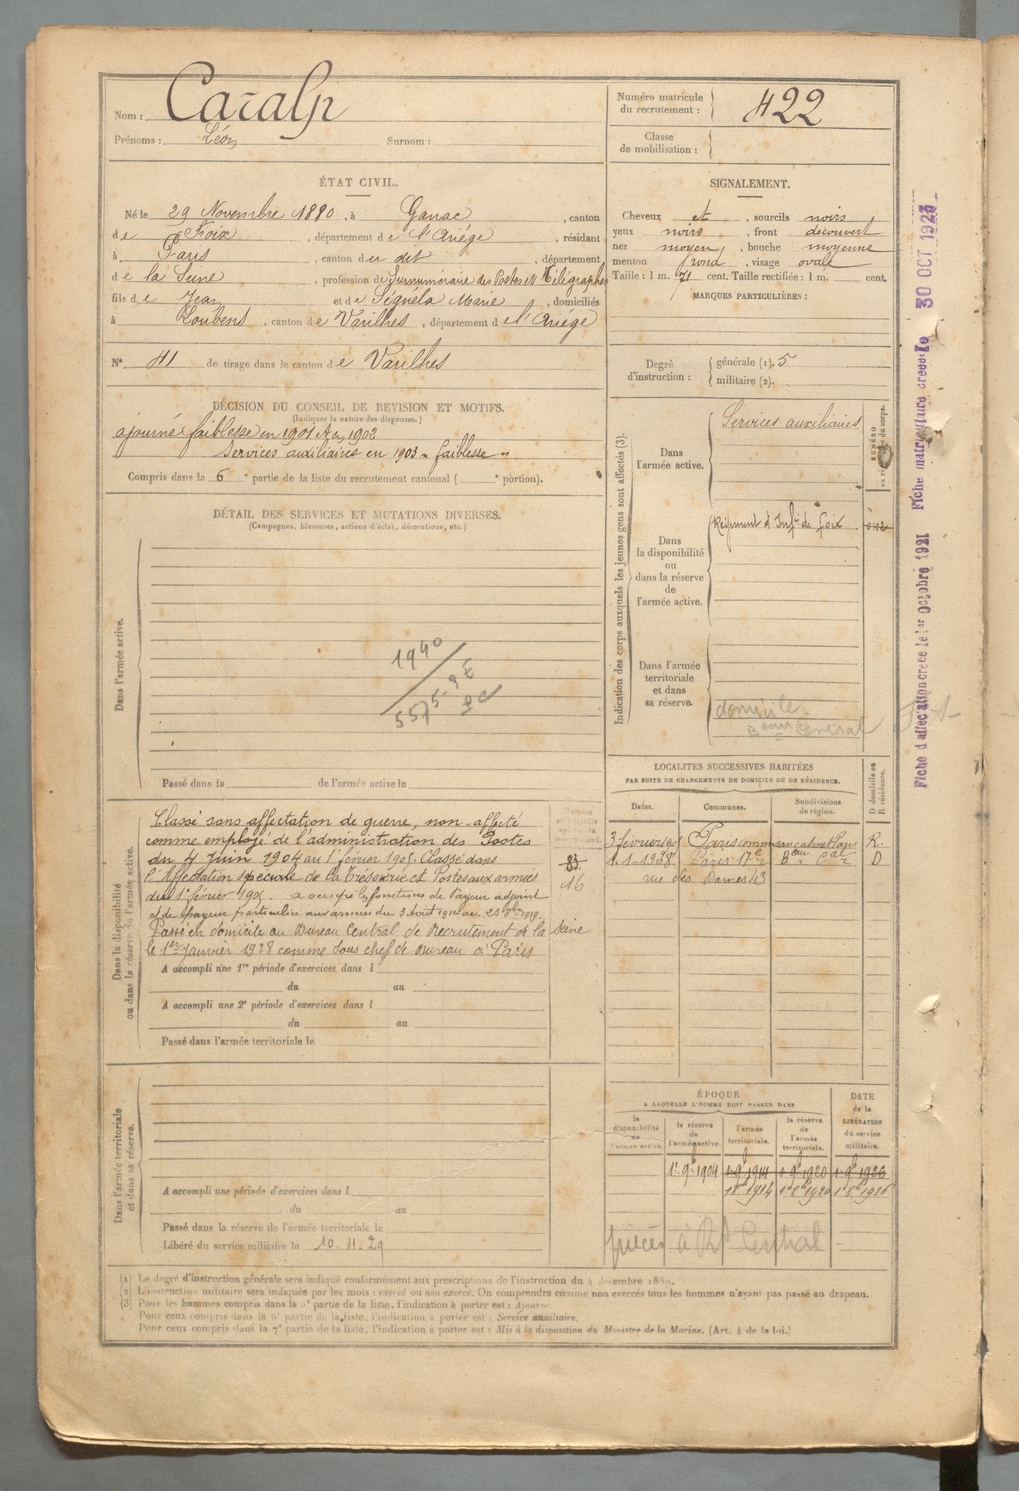 Nom : Caralp
Prénoms : Léon Surnom :
Numéro matricule du recrutement : 422
Classe de mobilisation :
ÉTAT CIVIL.
Né le 29 Novembre 1880, à Ganac, canton
de Foix, département de l'Ariége, résidant
à Paris, canton du dit, département
de la Seine, profession de Surnuméraire des Postes et Télégraphes
fils de Jean et de Séguéla Marie, domiciliés
à Loubens, canton de Varilhes, département de l'Ariége
N° 41 de tirage dans le canton de Varilhes
SIGNALEMENT.
Cheveux et, sourcils noirs
yeux noirs, front découvert
nez moyen, bouche moyenne
menton rond, visage ovale
Taille : 1 m. 71 cent. Taille rectifiée : 1 m. cent.
MARQUES PARTICULIÈRES :
Degré d'instruction : générale (1). 5
militaire (2).
DÉCISION DU CONSEIL DE REVISION ET MOTIFS.
(Indiquer la nature des dispenses.)
ajourné faiblesse en 1901 et en 1902
Services auxiliaires en 1903 " faiblesse "
Compris dans la 6e partie de la liste du recrutement cantonal ( e portion).
DÉTAIL DES SERVICES ET MUTATIONS DIVERSES.
(Campagnes, blessures, actions d'éclat, décorations, etc.)
Dans l'armée active.
1940
5575
Passé dans la de l'armée active le
Indication des corps auxquels les jeunes gens sont affectés (3).
Dans l'armée active.
Services auxiliaires
NUMÉRO
Dans la disponibilité ou dans la réserve de l'armée active.
Régiment d'Infie de Foix
Dans l'armée territoriale et dans sa réserve.
domicile
Beau Central
Dans la disponibilité ou dans la réserve de l'armée active.
Classé sans affectation de guerre, non-affecté
comme employé de l'administration des Postes
du 4 Juin 1904 au 1er février 1905. Classé dans
l'Affectation spéciale de la Trésorerie et Postes aux armées
du 1er février 1905. a occupé les fonctions de Payeur adjoint
et de payeur particulier aux armées du 3 Août 1914 au
Passé en domicile au Bureau Central de Recrutement de la Seine
le 1er Janvier 1928 comme Sous chef de Bureau à Paris
16
A accompli une 1re période d'exercices dans l
du au
A accompli une 2e période d'exercices dans l
du au
Passé dans l'armée territoriale le
LOCALITES SUCCESSIVES HABITÉES
PAR SUITE DE CHANGEMENTS DE DOMICILE OU DE RÉSIDENCE.
Dates. Communes. Subdivisions de région. D domicile ou R résidence.
3 février 1905 Paris R.
1-1-1928 Paris 17e Beau Cal D
rue des Dames 43
Dans l'armée territoriale et dans sa réserve.
A accompli une période d'exercices dans l
du au
Passé dans la réserve de l'armée territoriale le
Libéré du service militaire le 10-11-29
ÉPOQUE
A LAQUELLE L'HOMME DOIT PASSER DANS
la disponibilité de l'armée active. la réserve de l'armée active. l'armée territoriale. la réserve de l'armée territoriale.
DATE de la LIBÉRATION du service militaire.
1er 9bre 1904 1er 9bre 1914 1er 9bre 1920 1er 9bre 1926
1er 8bre 1914 1er 8bre 1920 1er 8bre 1926
pièces à Rt Central
(1) Le degré d'instruction générale sera indiqué conformément aux prescriptions de l'instruction du 4 décembre 1889.
(2) L'instruction militaire sera indiquée par les mots : exercé ou non exercé. On comprendra comme non exercés tous les hommes n'ayant pas passé au drapeau.
(3) Pour les hommes compris dans la 5e partie de la liste, l'indication à porter est : Ajourné.
Pour ceux compris dans la 6e partie de la liste, l'indication à porter est : Service auxiliaire.
Pour ceux compris dans la 7e partie de la liste, l'indication à porter est : Mis à la disposition du Ministre de la Marine. (Art. 4 de la loi.)
Fiche d'affectation créée le 1er Octobre 1921
Fiche matriculaire créée le 30 OCT 1923